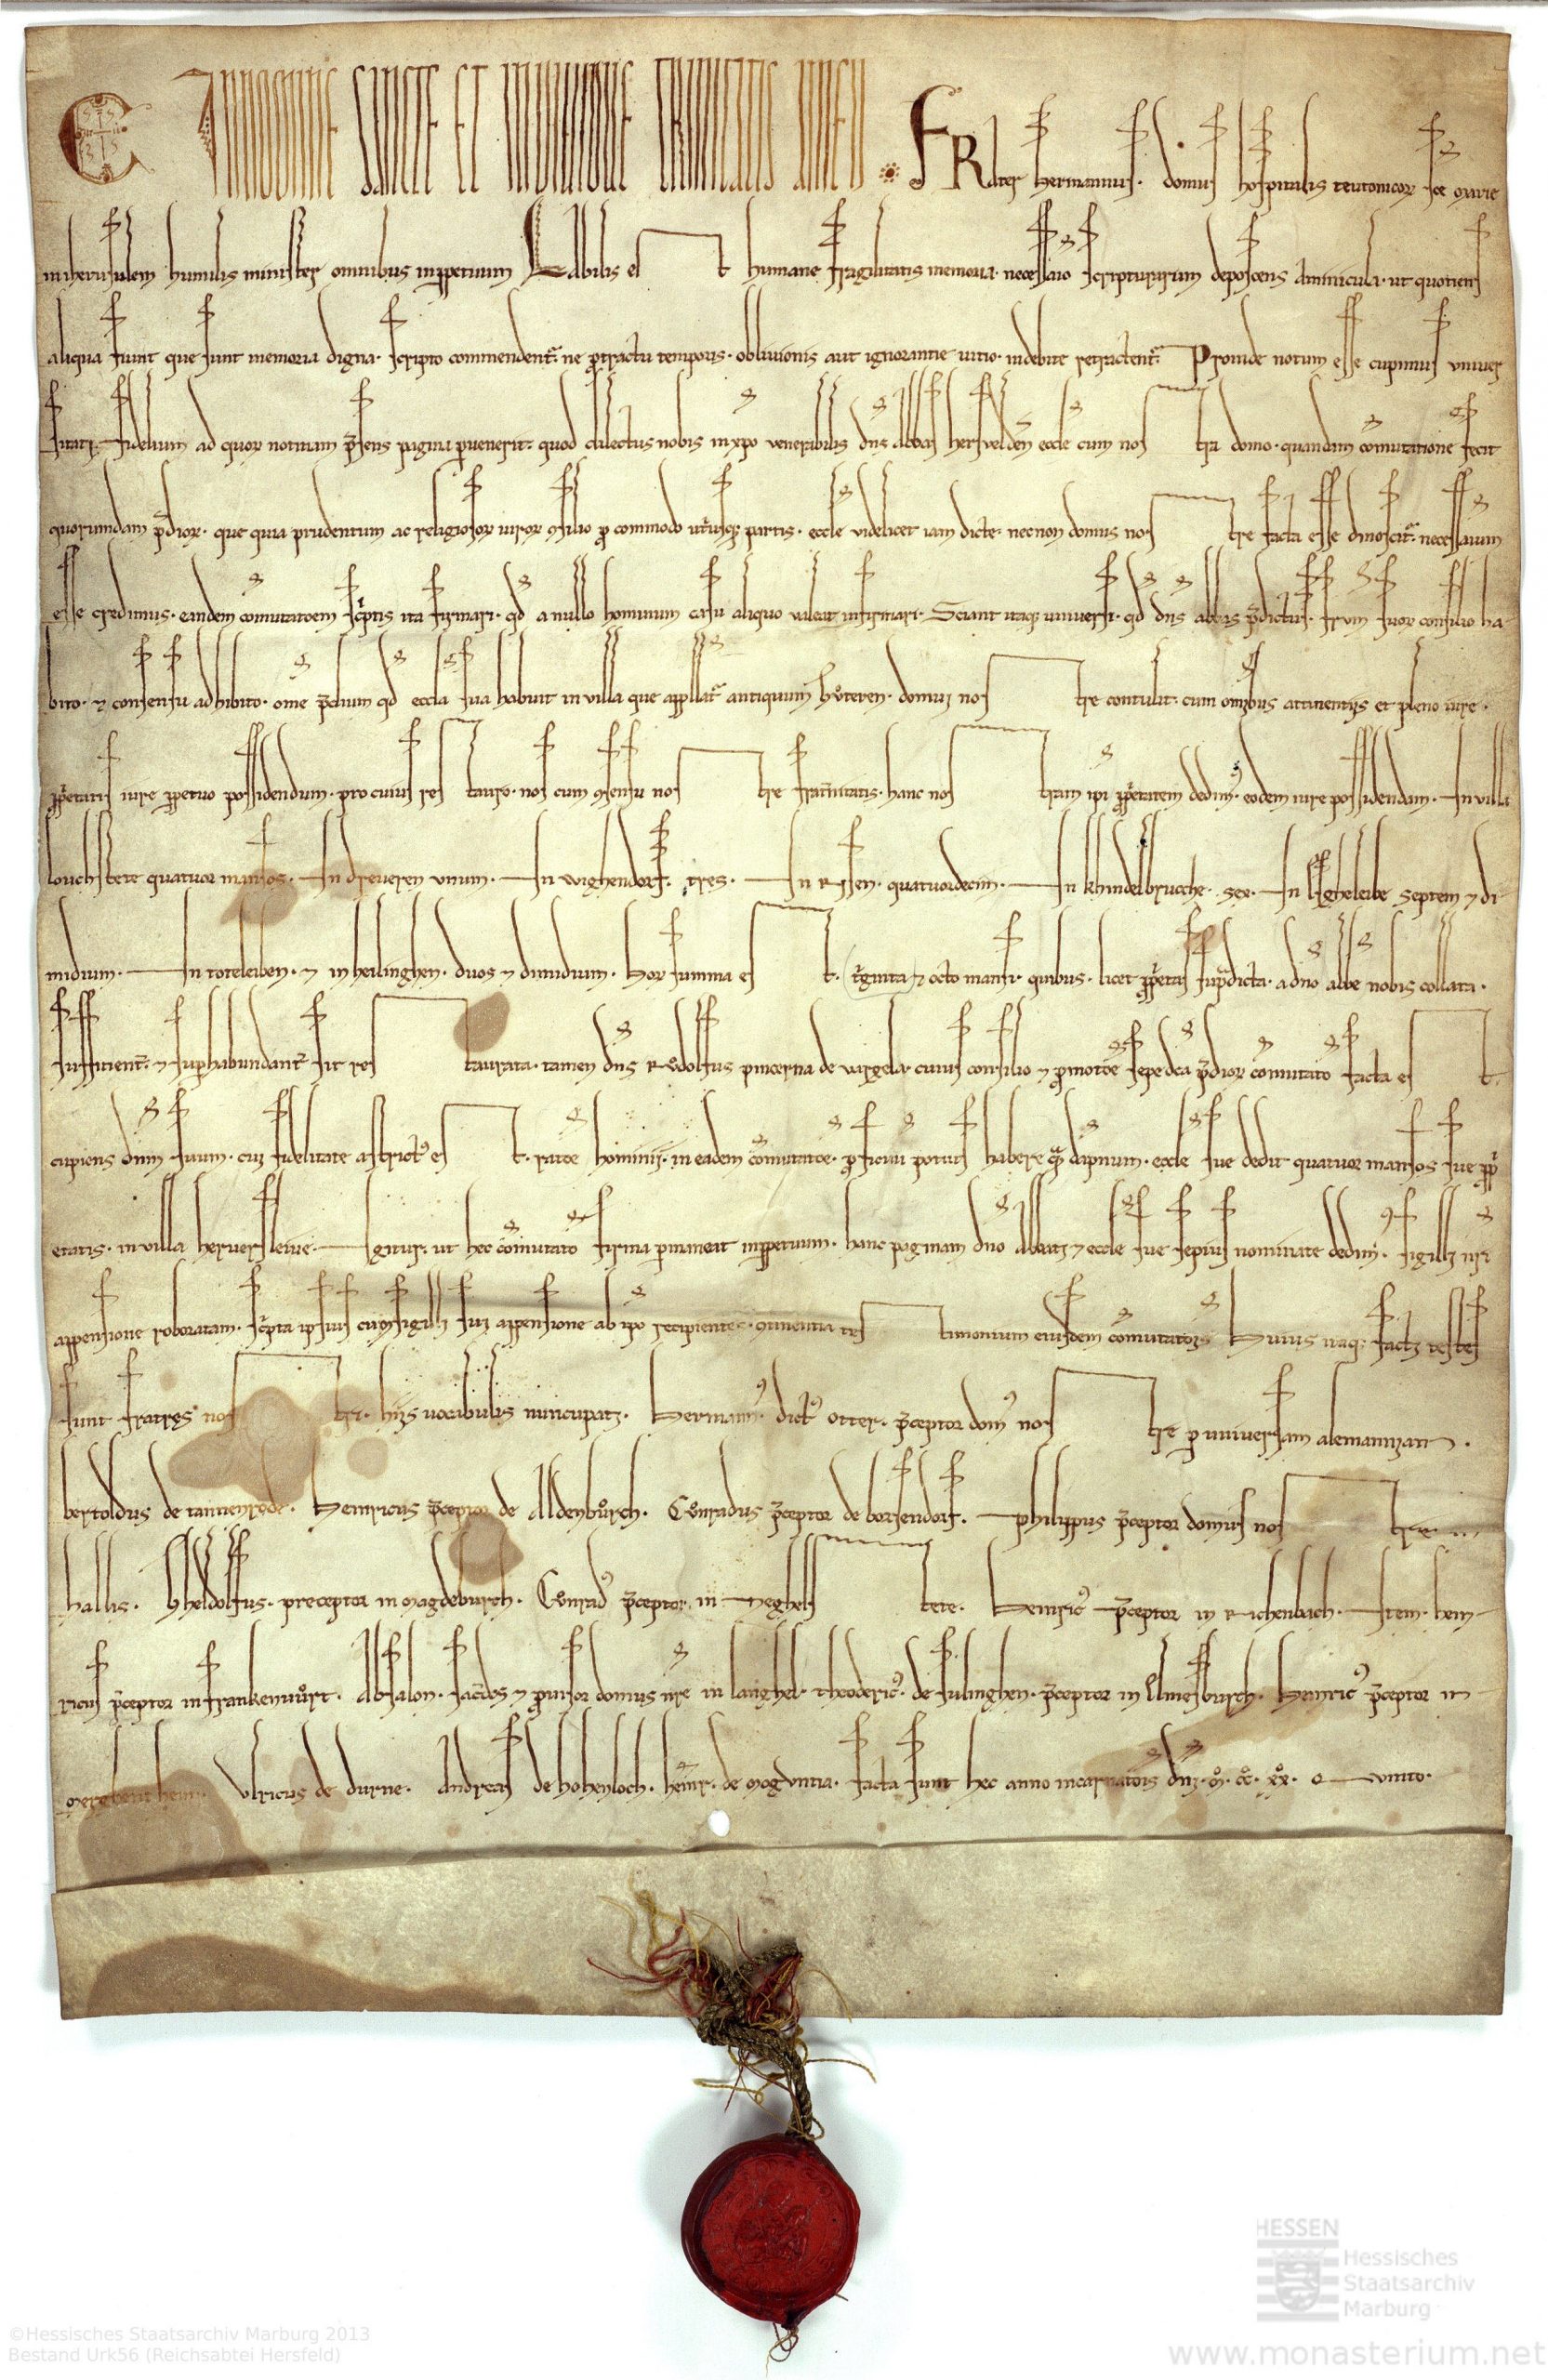 C IN NOMINE SANCTE ET INDIVIDUE TRINITATIS AMEN. FRater hermannus. domus hospitalis teutonicor sce marie
in iherusalem humilis minister omnibus inperpetuum Labilis est humane fragilitatis memoria. necessario scripturarum deposcens aminicula. ut quotiens
aliqua fiunt que sunt memoria digna. scripto commendent. ne ptractu temporis. oblivionis aut ignorantie uitio. indebite retractent. Proinde notum esse cupimus univer
sitati. fidelium ad quor notitiam psens pagina puenerit. quod dilectus nobis in xpo venerabilis dns abbas hersvelden eccle cum nostra domo. quandam comutatione fecit
quorumdam pdior. que quia prudentum ac religiosor uiror 9silio p commodo utiusq; partis. eccle videlicet iam dicte. necnon domus nostre facta esse dinoscit. necessarium
esse credimus. eandem comutatoem scptis ita firmari. qd a nullo hominum casu aliquo valeat infirmari. Sciant itaq; universi. qd dns abbas pdictus. frum suor consilio ha-
bito. 7 consensu adhibito. ome pdium qd eccla sua habuit in villa que appellat antiquum hůteren. domui nostre contulit. cum omibus attinentijs et pleno iure.
ppetatis iure ppetuo possidendum. pro cuius restauro. nos cum 9sensu nostre fratnitatis. hanc nostram ipi ppetatem dedim9. eodem iure possidendam. In villa
louchstete quatuor mansos. In dreveren unum. In wighendorf. tres. In Rssen. quatuordecim. In khindelbrucche. sex. In Ergheleibe septem 7 di
midium. In toteleiben. 7 in heilinghen. duos 7 dimidium. Hor summa est. triginta 7 octo mansi. quibus. licet ppetas supdicta. a dno abbe nobis collata.
sufficient. 7 suphabundant sit restaurata. tamen dns Růdolfus pincerna de vargela. cuius consilio 7 pmotoe sepe dca pdior comutato facta est.
cupiens dnm suum. cui fidelitate astrict9 est. ratoe hominij. in eadem comutatoe. pficuu potius habere qam dapnum. eccle sue dedit quatuor mansos sue pp
etatis. in villa herversleive. Igitur. ut hec comutato firma pmaneat inppetuum. hanc paginam dno abbati 7 eccle sue sepius nominate dedim9. sigilli nri
appensione roboratam. scpta ipsius cum sigilli sui appensione ab ipo recipientes. 9tinentia testimonium eiusdem comutatois Huius itaq; facti testes
sunt fratres nostri. hijs vocabulis nuncupati. Hermann9. dict9 otter. pceptor dom9 nostre p universam alemanniam.
bertoldus de tannenrode. Heinricus pceptor de Aldenbůrch. Cůnradus pceptor de borsendorf. philippus pceptor domus nostre in
hallis. Gheldolfus. preceptor in magdeburch. Cůnrad9 pceptor. in Neghelstete. Heinric9 pceptor in Richenbach. Item. hein-
ricus pceptor in frankenvůrt. Absalon. sacdos 7 puisor domus nre in langhel. theoderic9. de fulinghen. pceptor in Elmesburch. Heinric9 pceptor in
mergentheim. Ulricus de durne. Andreas de hohenloch. heinr. de moguntia. facta sunt hec anno incarnatois dni. m. cc. xx. o uinto.
©Hessisches Staatsarchiv Marburg 2013
Bestand Urk56 (Reichsabtei Hersfeld)
HESSEN
Hessisches
Staatsarchiv
Marburg
www.monasterium.net